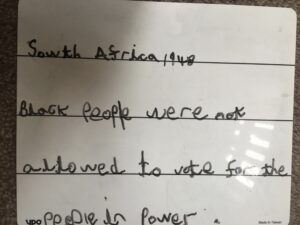 South Africa 1948
Black people were not
allowed to vote for the
people in power.
Made in Taiwan